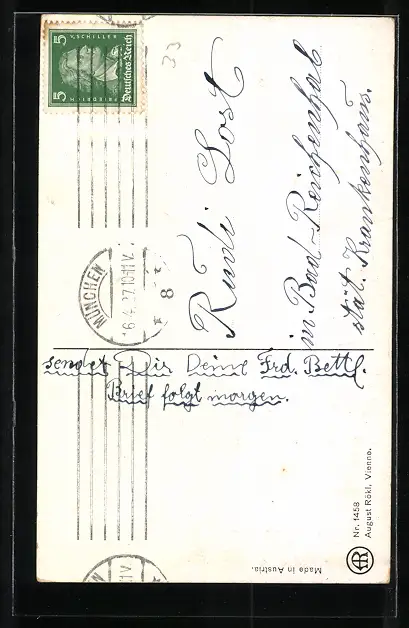 5
F. v. SCHILLER
FRIEDRICH
Deutsches Reich
5
33
MÜNCHEN
16.4.27.10-11 V.
8
Rudi Jost
in Bad-Reichenhall
stät. Krankenhaus.
sendet Dir Deine Frd. Bettl.
Brief folgt morgen.
Nr. 1458
August Rökl, Vienne.
Made in Austria.